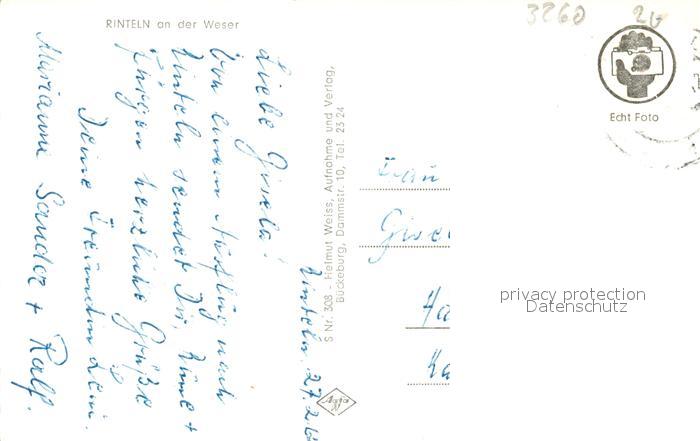 3260 20
RINTELN an der Weser
Echt Foto
Rinteln, 27.2.6
Liebe Gisela!
Von einem Ausflug nach
Rinteln sendet Dir, Rune +
Jürgen herzliche Grüße
Deine Freundin
Marianne Sander + Ralf.
S Nr. 308 - Helmut Weiss, Aufnahme und Verlag,
Bückeburg, Dammstr. 10, Tel. 23 24
Agfa
Frau
Gise
Ha
Ka
privacy protection
Datenschutz